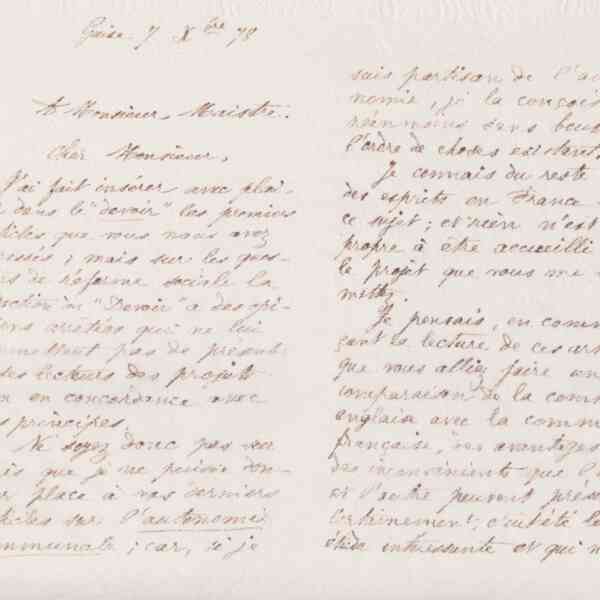 Guise 7 Xbre 78
A Monsieur Maistre.
Cher Monsieur,
J'ai fait insérer avec plai-
dans le "Devoir" les premiers
ticles que vous nous avez
ressés ; mais sur les ques-
ns de réforme sociale la
daction du "Devoir" a des opi-
ions arrêtées qui ne lui
mettent pas de présent
ses lecteurs des projets
en concordance avec
s principes.
Ne soyez donc pas sur
is que je ne puisse don-
er place à vos derniers
ticles sur l'autonomie
ommunale ; car, si je
suis partisan de l'au
nomie, je la conçois
néanmoins dans
l'ordre de choses existant.
Je connais du reste
des esprits en France
ce sujet ; et rien n'est
propre à être accueilli
le projet que vous me
mettez.
Je pensais, en comm
çant la lecture de ces art
que vous alliez faire un
comparaison de la comm
anglaise avec la comm
française, des avantages
des inconvénients que l'
et l'autre peuvent prés
Certainement, c'eut été l
étude intéressante et qui n